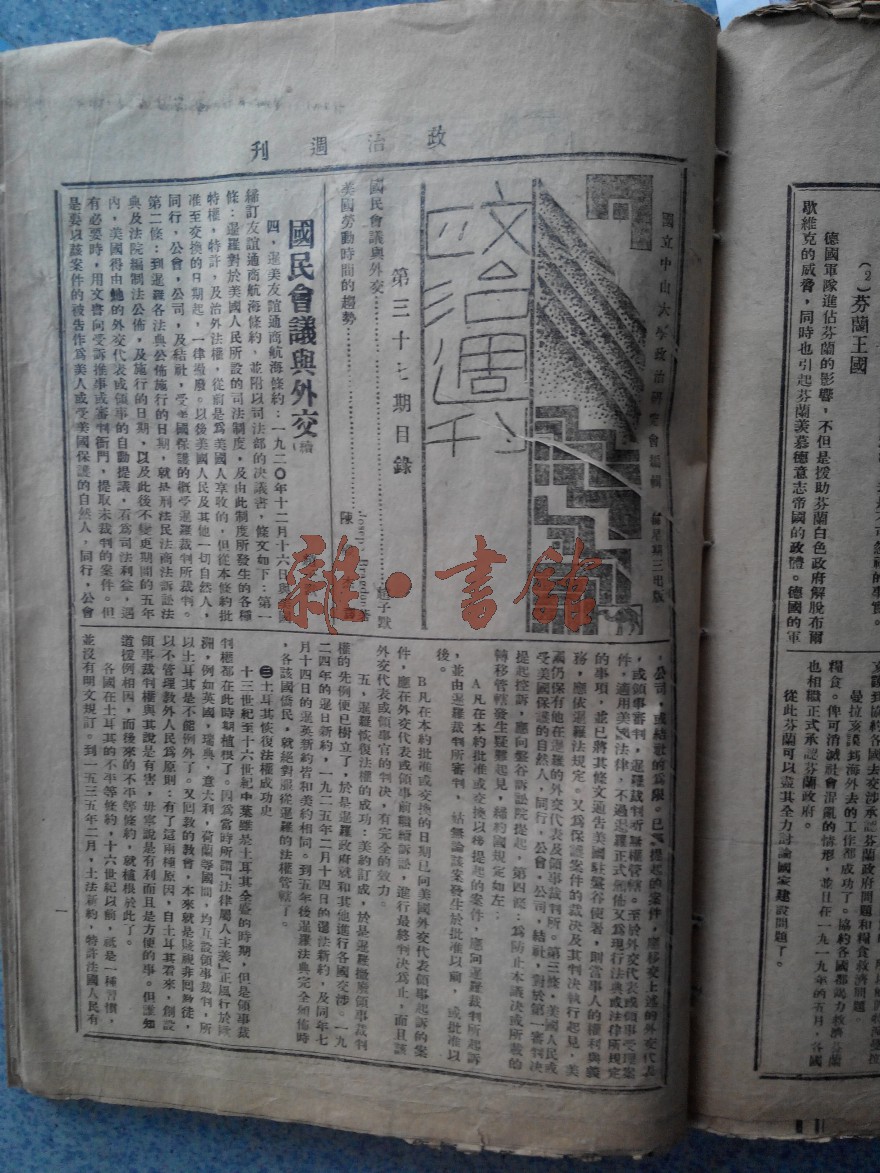 （2）芬蘭王國
德國軍隊進佔芬蘭的影響，不但是援助芬蘭白色政府解脫布爾
歇維克的威脅，同時也引起芬蘭羨慕德意志帝國的政體。德國的軍
曼拉亥謨爲海外去的工作都成功了。協約各國都認力救濟芬蘭
糧食。俾可消滅社會混亂的情形，並且在一九一九年的五月，各國
也相職正式承認芬蘭政府。
從此芬蘭可以盡其全力討論國家建設問題了。
政治週刊
國立中山大學政治研究會編輯 每星期三出版
政治週刊
第三十七期目錄
國民會議與外交……子默
美國勞動時間的趨勢……陳
國民會議與外交（續）
四，暹美友誼通商航海條約：一九二〇年十二月十六日與美國
締訂友誼通商航海條約，並附以司法部的決議書，條文如下：第一
條：暹羅對於美國人民所設的司法制度，及由此制度所發生的各種
特權，特許，及治外法權，從前是爲美國人享收的，但從本條約批
准至交換的日期起，一律撤廢。以後美國人民及其他一切自然人，
同行，公會，公司，及結社，受美國保護的概受暹羅裁判所裁判。
第二條：到暹羅各法典公佈施行的日期，就是刑法民法商法訴訟法
典及法院編制法公佈，及施行的日期，以及此後不變更期間的五年
內，美國得由她的外交代表或領事的自動提議，看爲司法利益，遇
有必要時，用文書向受訴推事或審判衙門，提取未裁判的案件。但
是要以該案件的被告作爲美人或受美國保護的自然人，同行，公會
，公司，或結社的爲限。已經提起的案件，應移交上述的外交代表
，或領事審判，暹羅裁判所無權管轄。至於外交代表或領事受理案
件，適用美國法律，不過暹羅正式頒佈又爲現行法典或法律所規定
的事項，並已將其條文通告美國駐盤谷使署，則當事人的權利與義
務，應依暹羅法規定。又爲保護案件的裁決及其判決執行起見，美
國仍保有他在暹羅的外交代表及領事裁判所。第三條，美國人民或
受美國保護的自然人，同行，公會，公司，結社，對於第一審判決
提起控訴，應向盤谷訴訟院提起，第四條：爲防止本議決或所載的
轉移管轄發生疑難起見，締約國規定如左：
A凡在本約批准或交換以後提起的案件，應向暹羅裁判所起訴
，並由暹羅裁判所審判，姑無論該案發生於批准以前，或批准以
後。
B凡在本約批准或交換的日期已向美國外交代表領事起訴的案
件，應在外交代表或領事前職續訴訟，進行最終判決爲止，而且該
外交代表或領事官的判決，有完全的效力。
五，暹羅恢復法權的成功：美約訂成，於是暹羅撤廢領事裁判
權的先例便已樹立了，於是暹羅政府就和其他進行各國交涉。一九
二四年的暹日新約，一九二五年二月十四日的暹法新約，及同年七
月十四日的暹英新約皆和美約相同。到五年後暹羅法典完全如佈時
，各該國僑民，就絕對服從暹羅的法權管轄了。
㊂土耳其恢復法權成功史
十三世紀至十六世紀中葉雖是土耳其全盛的時期，但是領事裁
判權都在此時期植根了。因爲當時所謂『法律屬人主義』正風行於歐
洲，例如英國，瑞典，意大利，荷蘭等國間，均互設領事裁判，所
以土耳其是不能例外了。又回教的教會，本來就是賤視非回教徒，
以不管理教外人民爲原則：有了這兩種原因，自土耳其看來，創設
領事裁判權與其說是有害，毋寧說是有利而且是方便的事。但誰知
道援例相因，而後來的不平等條約，就植根於此了。
各國在土耳其的不平等條約，十六世紀以前，祇是一種習慣，
並沒有明文規訂。到一五三五年二月，土法新約，特許法國人民有
一
雜·書館